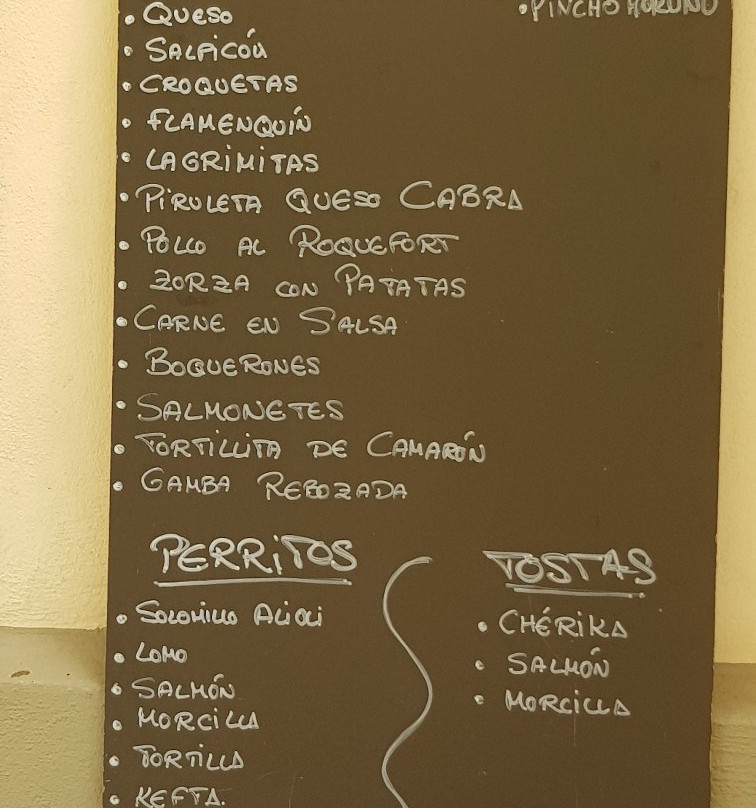 • QUESO
• PINCHO MORUNO
• SALPICÓN
• CROQUETAS
• FLAMENQUÍN
• LAGRIMITAS
• PIRULETA QUESO CABRA
• POLLO AL ROQUEFORT
• ZORZA CON PATATAS
• CARNE EN SALSA
• BOQUERONES
• SALMONETES
• TORTILLITA DE CAMARÓN
• GAMBA REBOZADA
PERRITOS
• SOLOMILLO ALIOLI
• LOMO
• SALMÓN
• MORCILLA
• TORTILLA
• KEFTA.
TOSTAS
• CHÉRIKA
• SALMÓN
• MORCILLA